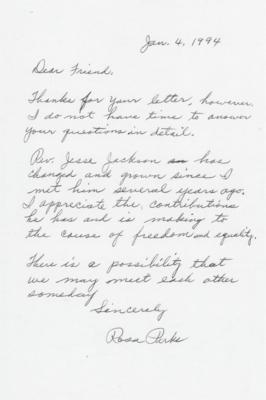 Jan. 4, 1994
Dear Friend,
Thanks for your letter, however,
I do not have time to answer
your questions in detail.
Rev. Jesse Jackson has
changed and grown since I
met him several years ago.
I appreciate the contributions
he has and is making to
the cause of freedom and equality.
There is a possibility that
we may meet each other
someday
Sincerely
Rosa Parks